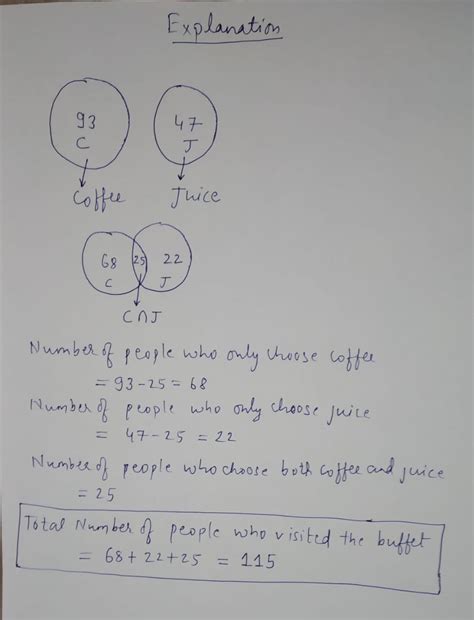 Explanation
93 47
C J
Coffee Juice
68 25 22
C J
C∩J
Number of people who only choose coffee
= 93-25 = 68
Number of people who only choose juice
= 47-25 = 22
Number of people who choose both coffee and juice
= 25
Total Number of people who visited the buffet
= 68+22+25 = 115